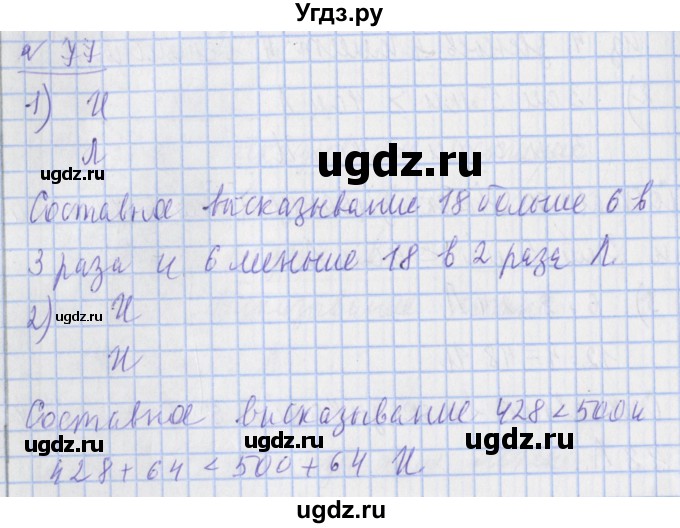 Угдз.ру
№ 77
1) И
ugdz.ru
Л
ugdz.ru
ugdz.ru
Составное высказывание 18 больше 6 в
3 раза и 6 меньше 18 в 2 раза Л
2) И
ugdz.ru
ugdz.ru
И
Составное высказывание 428 < 500 и
ugdz.ru
ugdz.ru
ugdz.ru
428 + 64 < 500 + 64 И
ugdz.ru
ugdz.ru